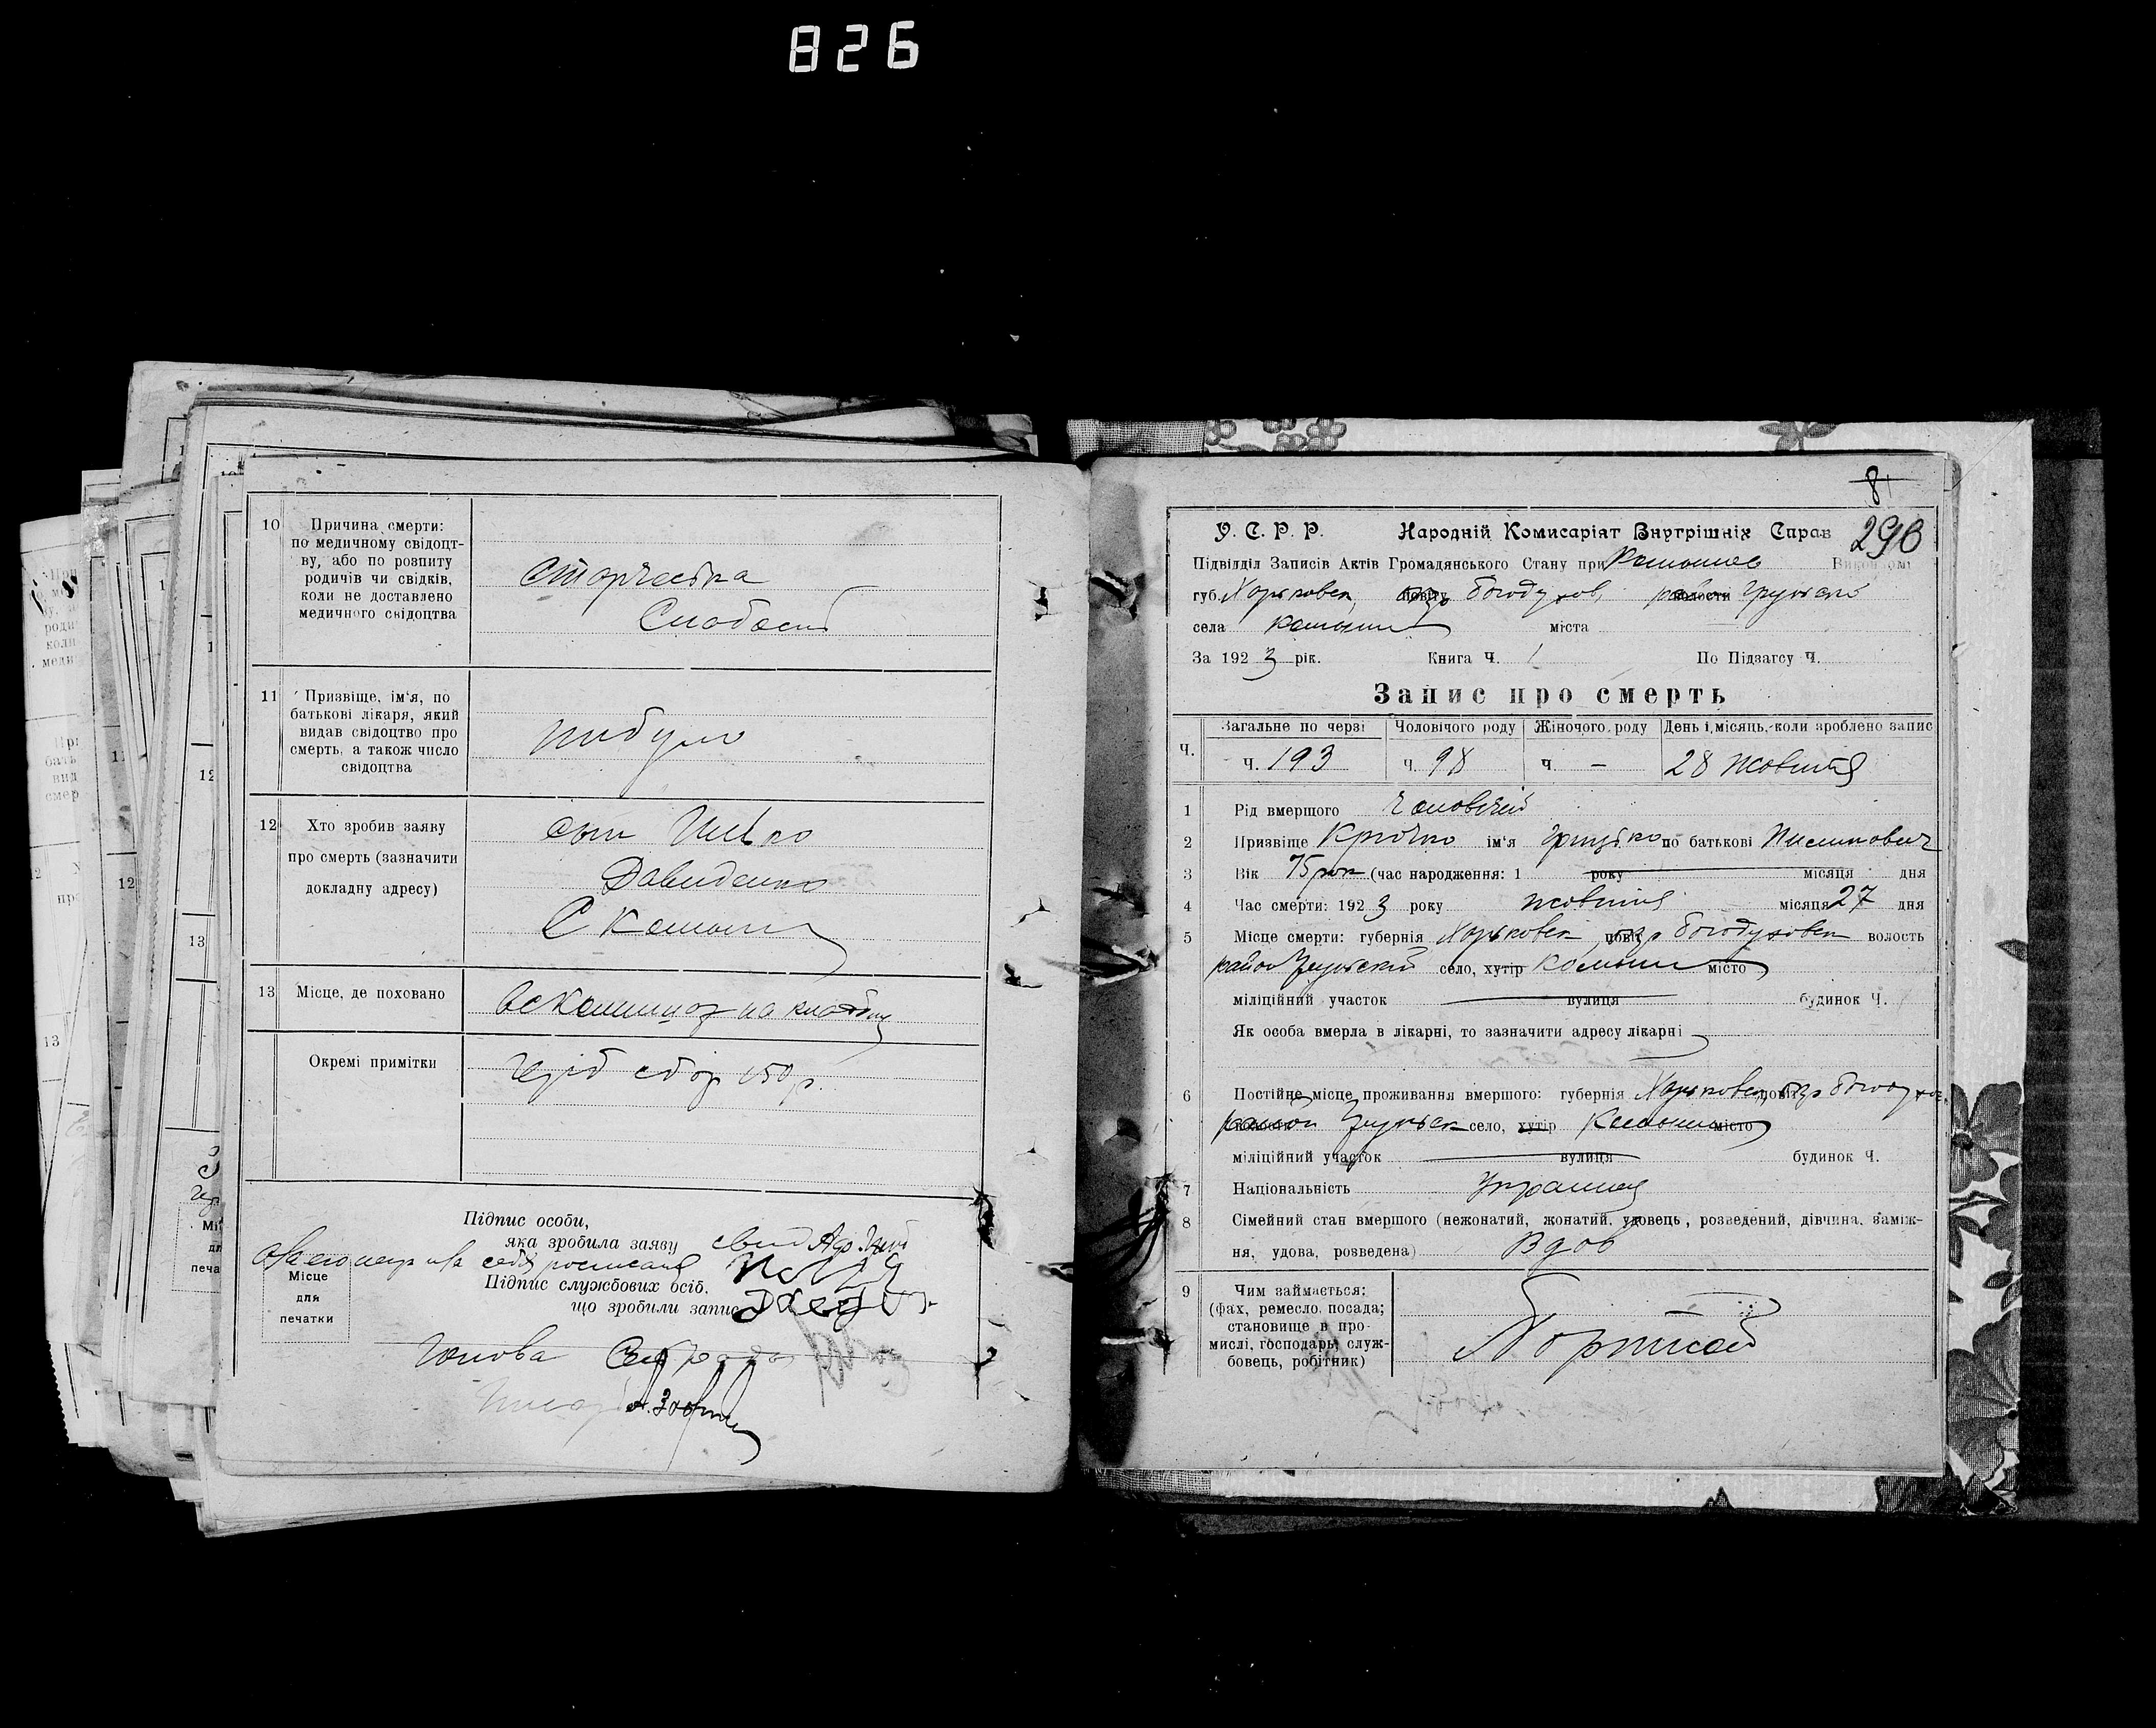 826
10 Причина смерти:
по медичному свідоцт-
ву, або по розпиту
родичів чи свідків,
коли не доставлено
медичного свідоцтва
Старческа
Слабост
11 Призвіще, ім'я, по
батькові лікаря, який
видав свідоцтво про
смерть, а також число
свідоцтва
нибуло
12 Хто зробив заяву
про смерть (зазначити
докладну адресу)
сын Илько
Давиденко
С Камыши
13 Місце, де поховано
на кладбищ
Окремі примітки
сбор 150 р.
Підпис особи,
яка зробила заяву
Підпис службових осіб,
що зробили запис
Місце
для
печатки
Голова
81
290
У. С. Р. Р. Народній Комисаріят Внутрішніх Справ
Підвідділ Записів Актів Громадянського Стану при Викон
губ. Харьковск, повіту Богодухов, волости
села Камыши міста
За 1923 рік. Книга Ч. 1 По Підзагсу Ч.
Запис про смерть
Ч. Загальне по черзі Чоловічого роду Жіночого роду День і місяць, коли зроблено запис
ч. 193 ч. 98 ч — 28 жовтня
1 Рід вмершого Чоловічий
2 Призвіще Крючко ім'я Грицько по батькові
3 Вік 75 рок (час народження: 1 року місяця дня
4 Час смерти: 1923 року жовтня місяця 27 дня
5 Місце смерти: губернія Харьковск повіт окр Богодуховск волость
район село, хутір Камыши місто
міліційний участок вулиця будинок Ч.
Як особа вмерла в лікарні, то зазначити адресу лікарні
6 Постійне місце проживання вмершого: губернія Харьковск повіт окр Богодухов
район село, хутір Камыши місто
міліційний участок вулиця будинок Ч.
7 Національність Украинец
8 Сімейний стан вмершого (нежонатий, жонатий, удовець, розведений, дівчина, заміж-
ня, удова, розведена) Вдов
9 Чим займається:
(фах, ремесло, посада;
становище в про-
мислі, господарь, служ-
бовець, робітник)